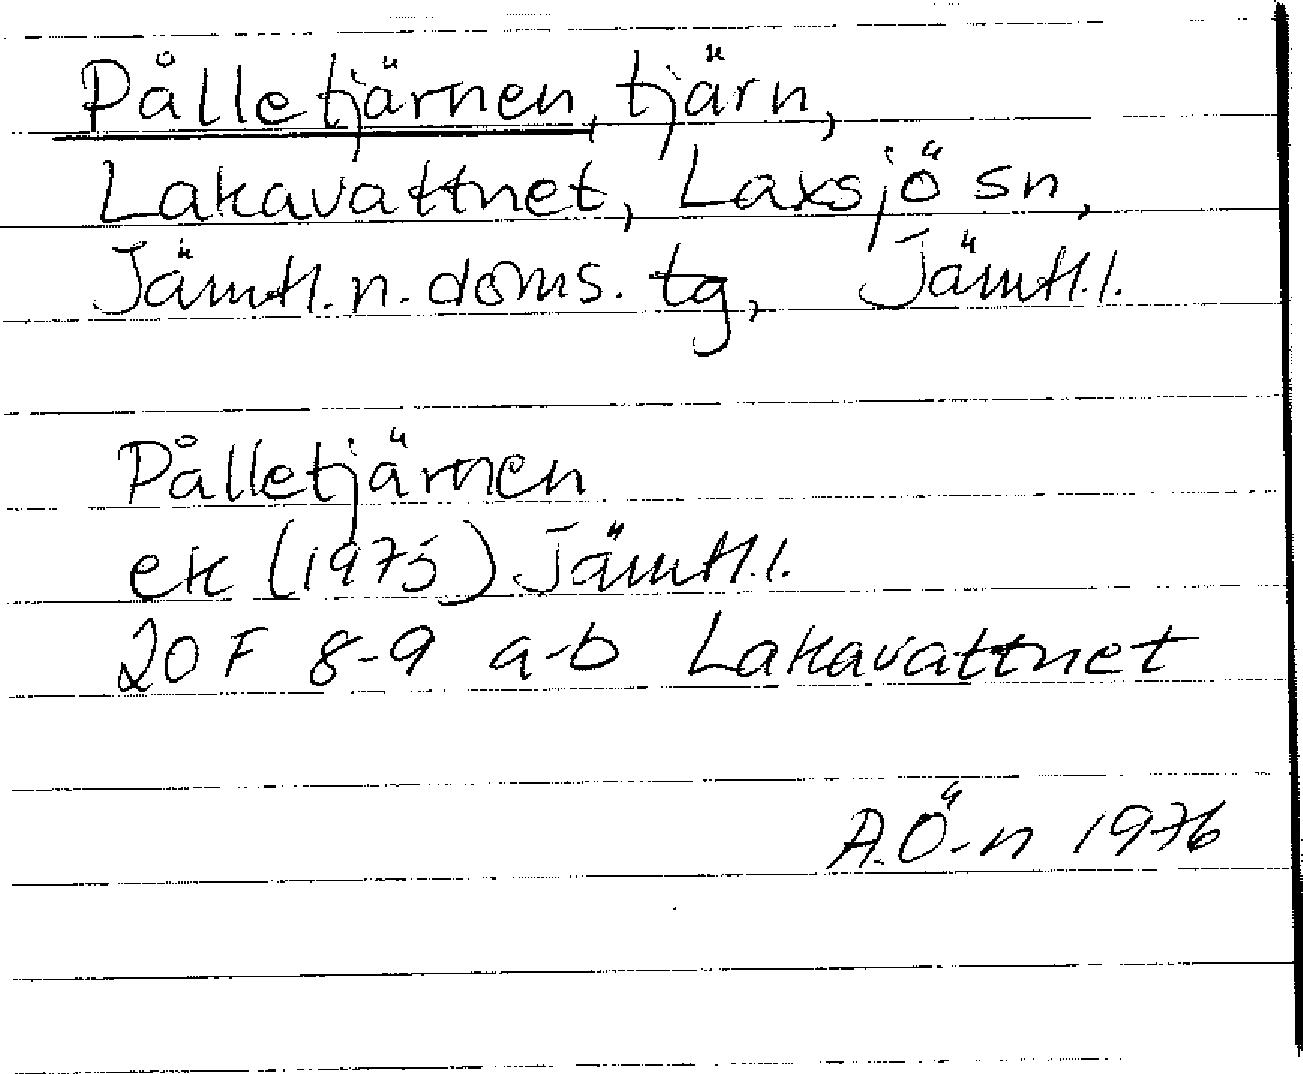 Pålletjärnen, tjärn,
Lakavattnet, Laxsjö sn,
Jämtl. n. doms. tg, Jämtl. l.
Pålletjärnen
ek (1975) Jämtl. l.
20 F 8-9 a-b Lakavattnet
A.Ö-n 1976